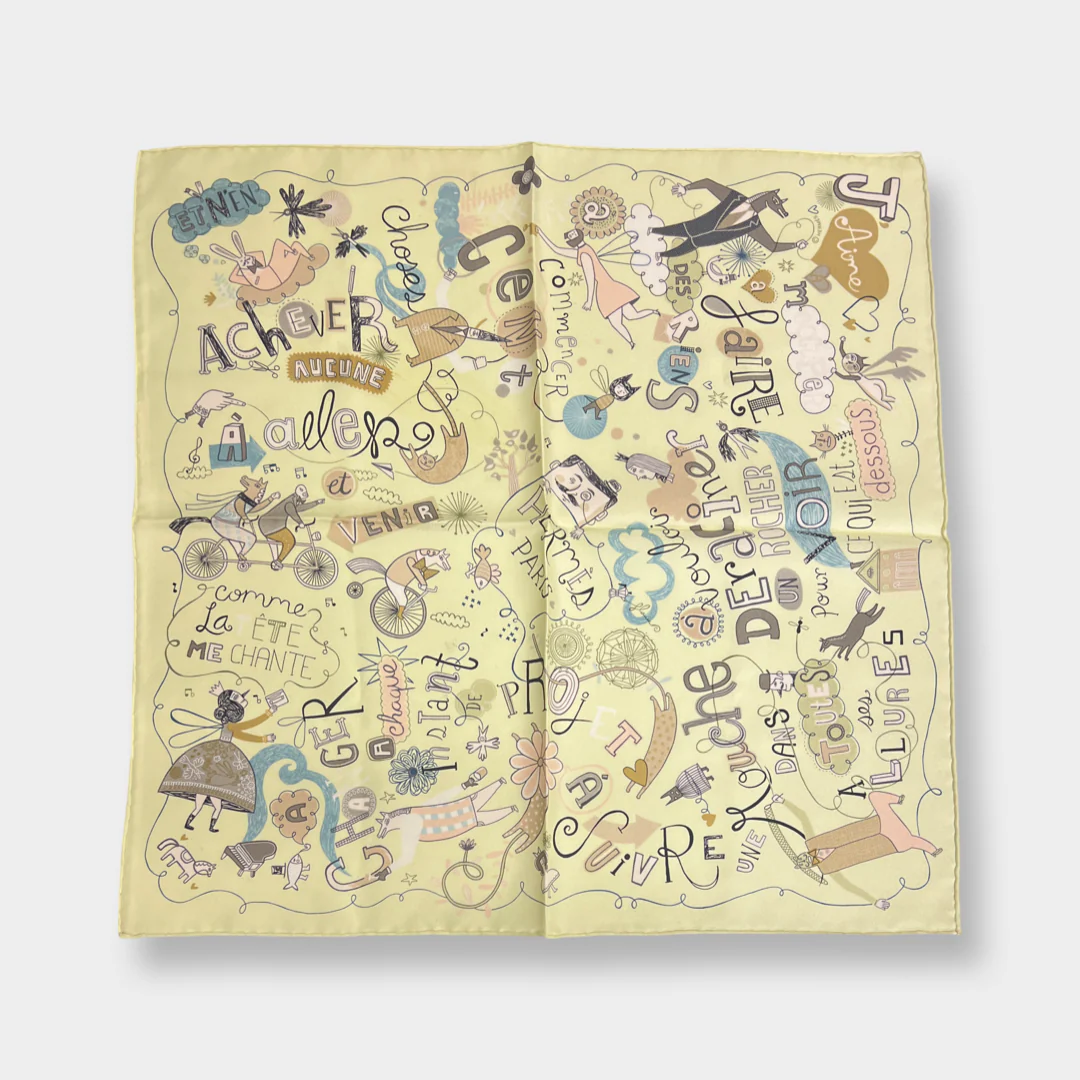 J'Aime
a
FAIRE
DES
RIENS
a
Commencer
Cent
choses
ET N'EN
AChEVER
AUCUNE
À
aller
et
VENIR
comme
La TÊTE
ME CHANTE
A
CHANGER
A chaque
instant
DE
PROJET
À
SUiVRE
UNE
Mouche
DANS
TOUTES
ses
ALLURES
a
vouloir
DERaciner
UN
ROCHER
pour
VOiR
CE QUI EST
dessous
HERMÈS
PARIS